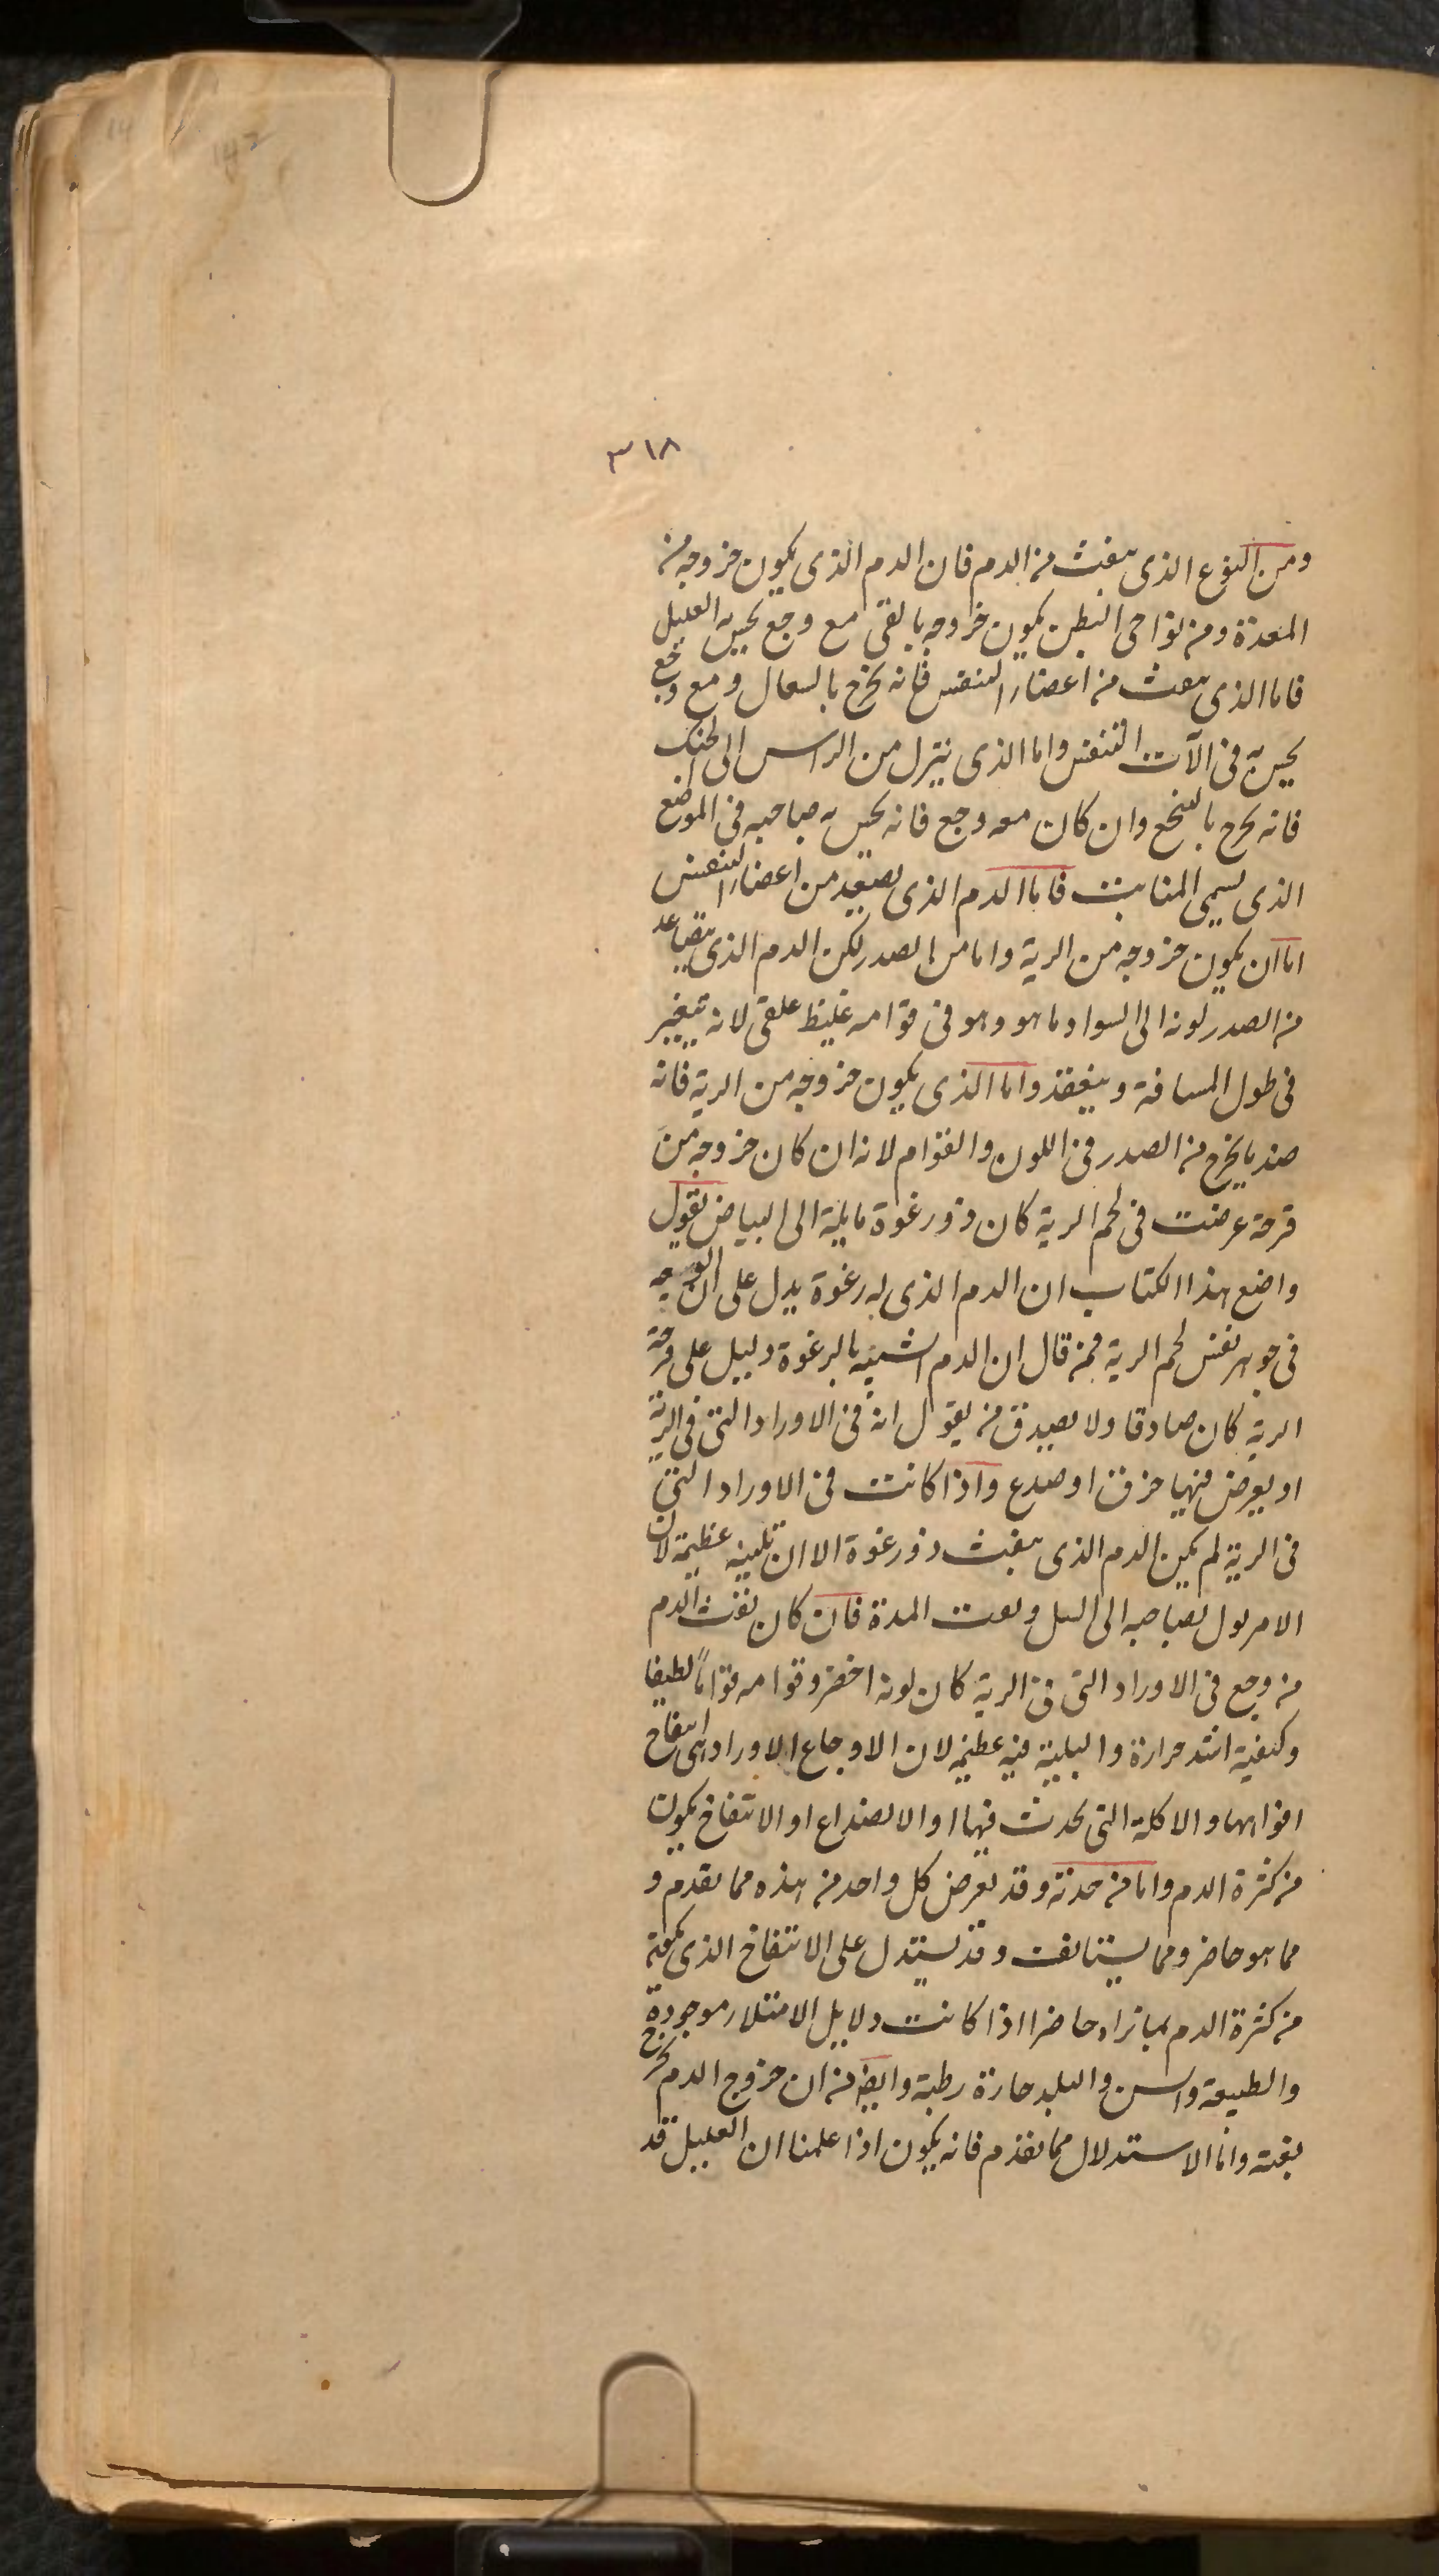 ٣١٨
ومن النوع الذى ينفث من الدم فان الدم الذى يكون خروجه من
المعدة ومن نواحى البطن يكون خروجه بالقى مع وجع يحس به العليل
فاما الذى ينفث من اعضاء التنفس فانه يخرج بالسعال ومع وجع
يحس به فى الآت التنفس واما الذى ينزل من الراس الى الحنك
فانه يخرج بالتنخع وان كان معه وجع فانه يحس به صاحبه فى الموضع
الذى يسمى المنابت فاما الدم الذى يصعد من اعضاء التنفس
اما ان يكون خروجه من الرية واما من الصدر لكن الدم الذى يتصاعد
من الصدر لونه الى السواد ما هو وهو فى قوامه غليظ علقى لانه يتغير
فى طول المسافة وينعقد واما الذى يكون خروجه من الرية فانه
ضد ما يخرج من الصدر فى اللون والقوام لانه ان كان خروجه من
قرحة عرضت فى لحم الرية كان ذو رغوة مايلة الى البياض نقول
واضع هذا الكتاب ان الدم الذى له رغوة يدل على ان القرحة
فى جوهر نفس لحم الرية فمن قال ان الدم الشبيه بالرغوة دليل على قرحة
الرية كان صادقا ولا يصدق من يقول انه فى الاوراد التى فى الرية
او يعرض فيها خرق او صدع واذا كانت فى الاوراد التى
فى الرية لم يكن الدم الذى ينفث ذو رغوة الا ان بليته عظيمة لان
الامر يول بصاحبه الى السل ونفث المدة فان كان نفث الدم
من وجع فى الاوراد التى فى الرية كان لونه احضر وقوامه قواماً لطيفا
وكيفية اشد حرارة والبلية فيه عظيمه لان الاوجاع الاوراد هى انتفاخ
افواهها والاكلة التى تحدث فيها او الانصداع او الانتفاخ يكون
من كثرة الدم واما من حدته وقد يعرض كل واحد من هذه مما تقدم و
مما هو حاضر ومما يستانف وقد يستدل على الانتفاخ الذى يكون
من كثرة الدم بما نراه حاضرا اذا كانت دلايل الامتلاء موجودة
والطبيعة والسن والبلد حارة رطبة وايضا من ان خروج الدم يخرج
بغتة واما الاستدلال مما تقدم فانه يكون اذا علمنا ان العليل قد